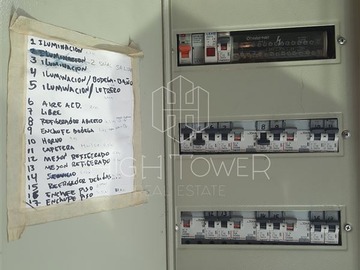 1 ILUMINACION
2 ILUMINACION
3 ILUMINACION
4 ILUMINACION/BODEGA-BAÑO
5 ILUMINACION/LETRERO
6 AIRE ACD.
7 LIBRE
8 REFRIGERADOR ABIERTO
9 ENCHUFE BODEGA
10 HORNO
11 CAFETERA
12 MESON REFRIGERADO
13 MESON REFRIGERADO
14
15 REFRIGERADOR
16 ENCHUFE PISO
17 ENCHUFE PISO
HIGHTOWER
REAL ESTATE